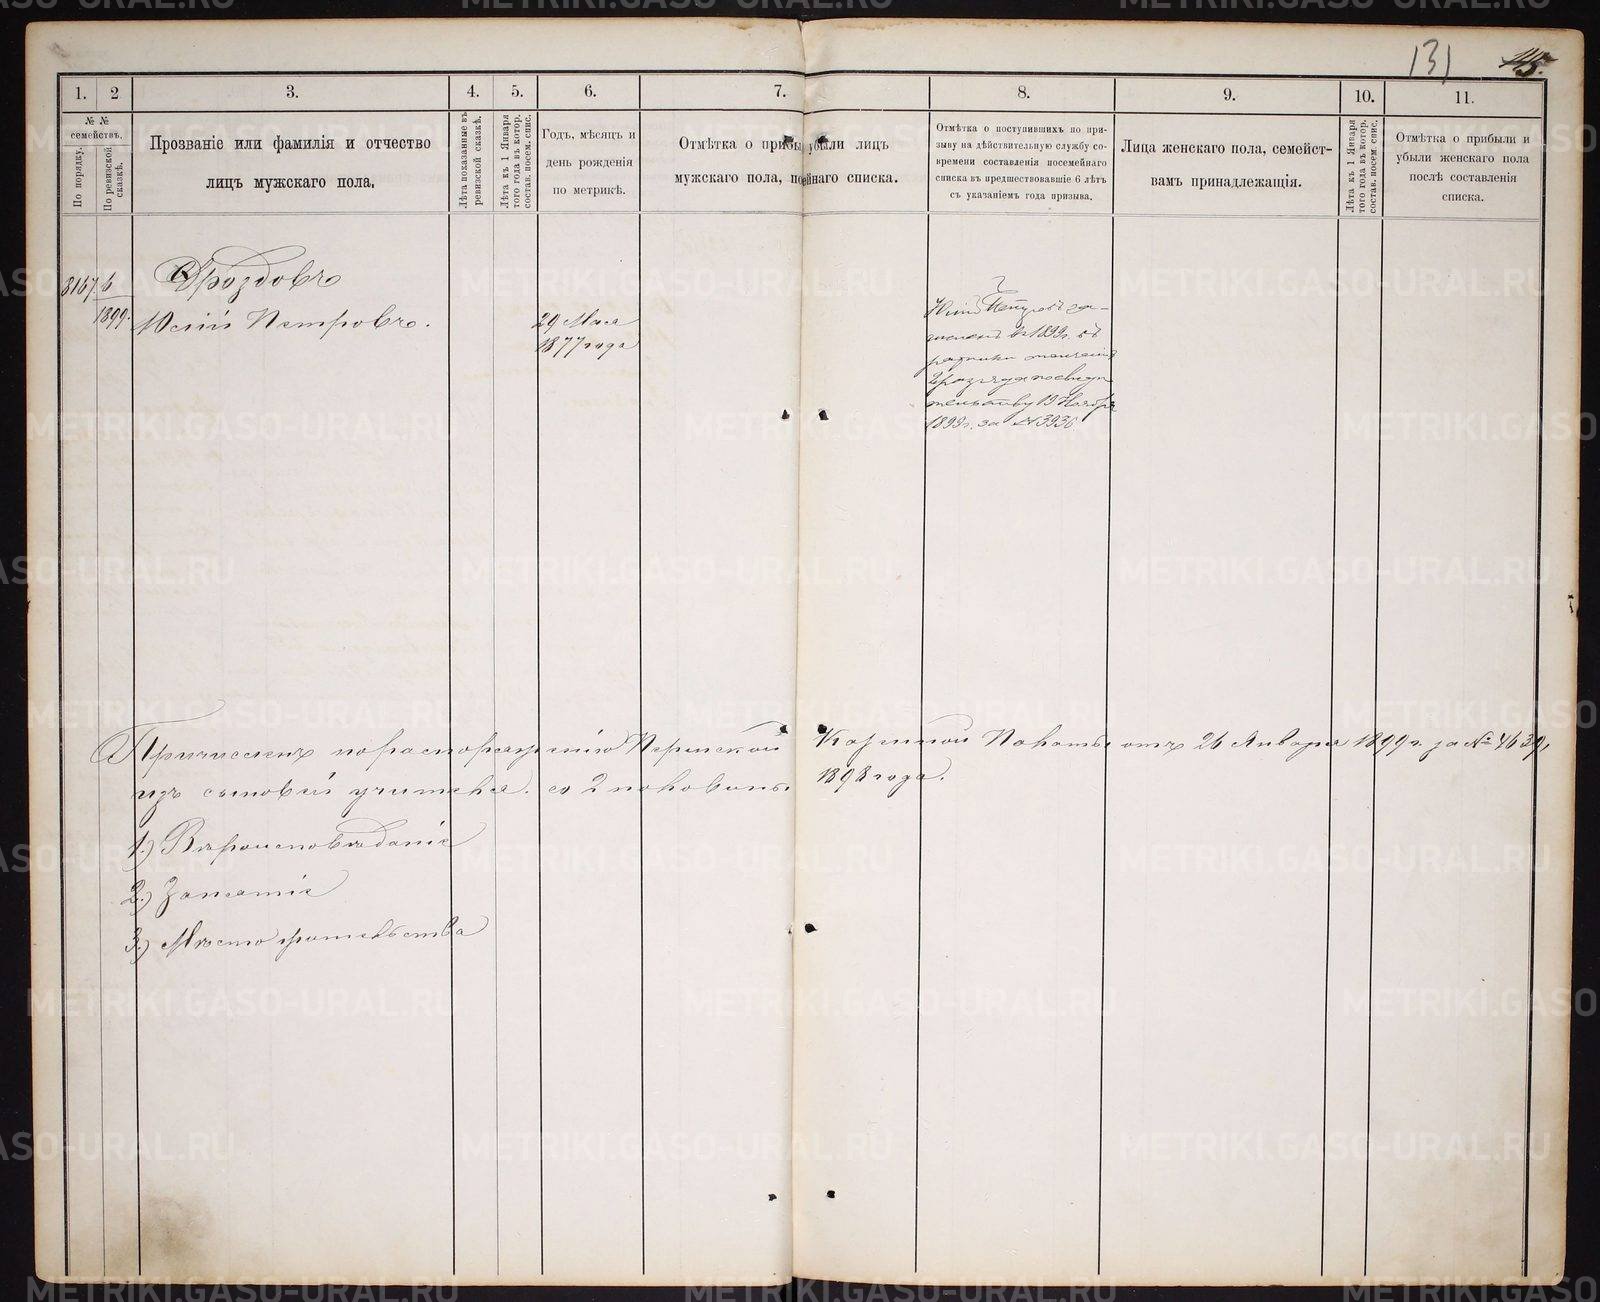 131 145.
1. 2 3. 4. 5. 6. 7. 8. 9. 10. 11.
№ №
семействъ.
По порядку.
По ревизской
сказкѣ.
Прозваніе или фамилія и отчество
лицъ мужскаго пола.
Лѣта показанные въ
ревизской сказкѣ.
Лѣта къ 1 Января
того года въ котор.
состав. посем. спис.
Годъ, мѣсяцъ и
день рожденія
по метрикѣ.
Отмѣтка о прибы убыли лицъ
мужскаго пола, по ейнаго списка.
Отмѣтка о поступившихъ по при-
зыву на дѣйствительную службу со-
времени составленія посемейнаго
списка въ предшествовавшіе 6 лѣтъ
съ указаніемъ года призыва.
Лица женскаго пола, семейст-
вамъ принадлежащія.
Лѣта къ 1 Января
того года въ котор.
состав. посем. спис.
Отмѣтка о прибыли и
убыли женскаго пола
послѣ составленія
списка.
3167 6
1899.
Дроздовъ
Юлій Петровъ.
29 Мая
1877 года
Юлій Петровъ за-
численъ въ 1899 г. въ
ратники ополченія
2 разряда по свидѣ-
тельству 19 Ноября
1899 г. за № 3936
Причисленъ по распоряженію Пермской Казенной Палаты отъ 26 Января 1899 г. за № 4639,
изъ сыновей учителя. со 2 половины 1898 года.
1.) Вѣроисповѣданіе
2.) Занятіе
3.) Мѣсто жительства
METRIKI.GASO-URAL.RU